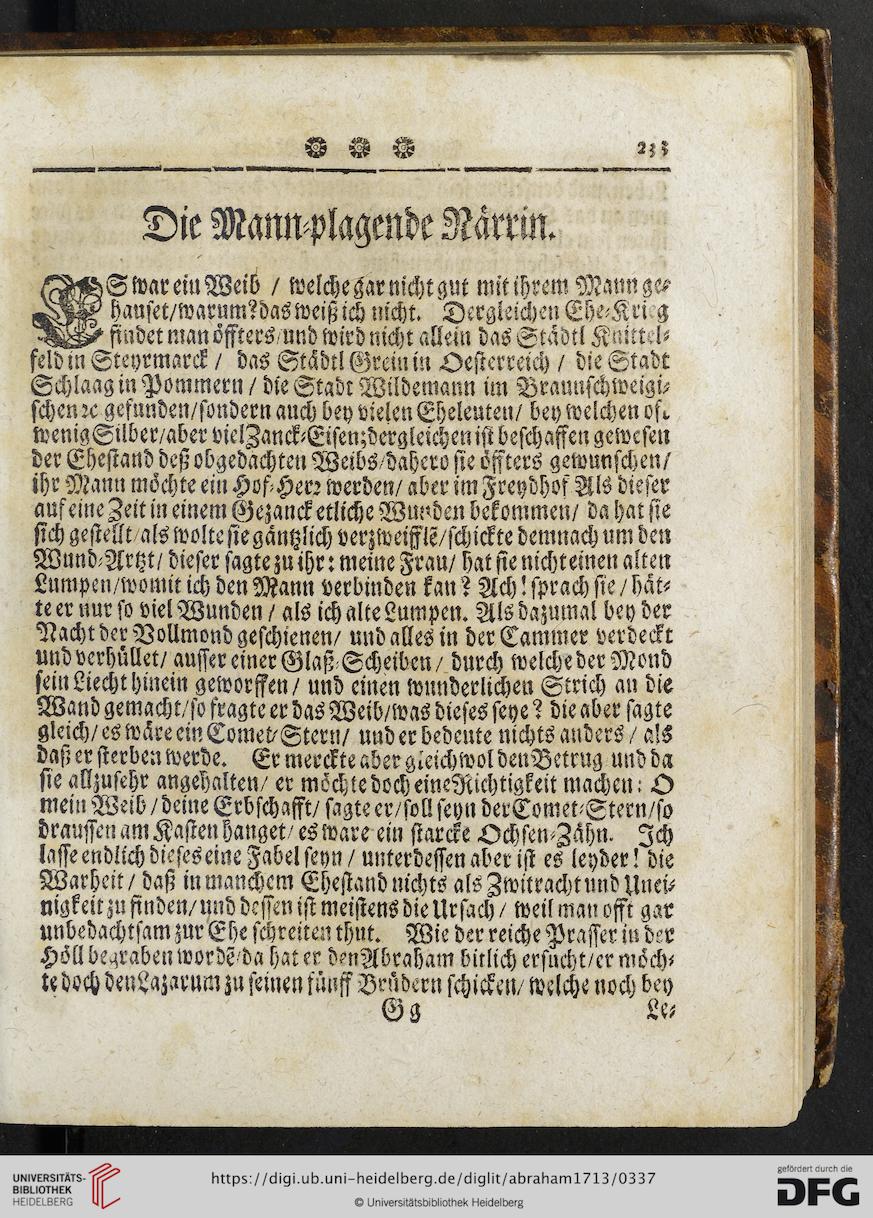 233
Die Mann-plagende Närrin.
ES war ein Weib / welche gar nicht gut mit ihrem Mann ge-
hauset/warum? das weiß ich nicht. Dergleichen Ehe-Krieg
findet man öffters/und wird nicht allein das Städtl Knittel-
feld in Steyrmarck / das Städtl Grein in Oesterreich / die Stadt
Schlaag in Pommern / die Stadt Wildemann im Braunschweigi-
schen ꝛc gefunden/sondern auch bey vielen Eheleuten/ bey welchen oft
wenig Silber/aber viel Zanck-Eisen; dergleichen ist beschaffen gewesen
der Ehestand deß obgedachten Weibs/dahero sie öffters gewunschen/
ihr Mann möchte ein Hof-Herꝛ werden/ aber im Freydhof Als dieser
auf eine Zeit in einem Gezanck etliche Wunden bekommen/ da hat sie
sich gestellt/als wolte sie gäntzlich verzweifflē/schickte demnach um den
Wund-Artzt/ dieser sagte zu ihr: meine Frau/ hat sie nicht einen alten
Lumpen/womit ich den Mann verbinden kan? Ach! sprach sie / hät-
te er nur so viel Wunden / als ich alte Lumpen. Als dazumal bey der
Nacht der Vollmond geschienen/ und alles in der Cammer verdeckt
und verhüllet/ ausser einer Glaß-Scheiben / durch welche der Mond
sein Liecht hinein geworffen / und einen wunderlichen Strich an die
Wand gemacht/so fragte er das Weib/was dieses seye? die aber sagte
gleich/ es wäre ein Comet-Stern/ und er bedeute nichts anders / als
daß er sterben werde. Er merckte aber gleichwol den Betrug und da
sie allzusehr angehalten/ er möchte doch eine Richtigkeit machen: O
mein Weib / deine Erbschafft/ sagte er/soll seyn der Comet-Stern/so
draussen am Kasten hanget/ es ware ein starcke Ochsen-Zähn. Ich
lasse endlich dieses eine Fabel seyn / unterdessen aber ist es leyder! die
Warheit / daß in manchem Ehestand nichts als Zwitracht und Unei-
nigkeit zu finden/ und dessen ist meistens die Ursach / weil man offt gar
unbedachtsam zur Ehe schreiten thut. Wie der reiche Prasser in der
Höll begraben wordē/da hat er den Abraham bitlich ersucht/er möch-
te doch den Lazarum zu seinen fünff Brüdern schicken/ welche noch bey
Gg Le-
UNIVERSITÄTS-
BIBLIOTHEK
HEIDELBERG
https://digi.ub.uni-heidelberg.de/diglit/abraham1713/0337
© Universitätsbibliothek Heidelberg
gefördert durch die
DFG